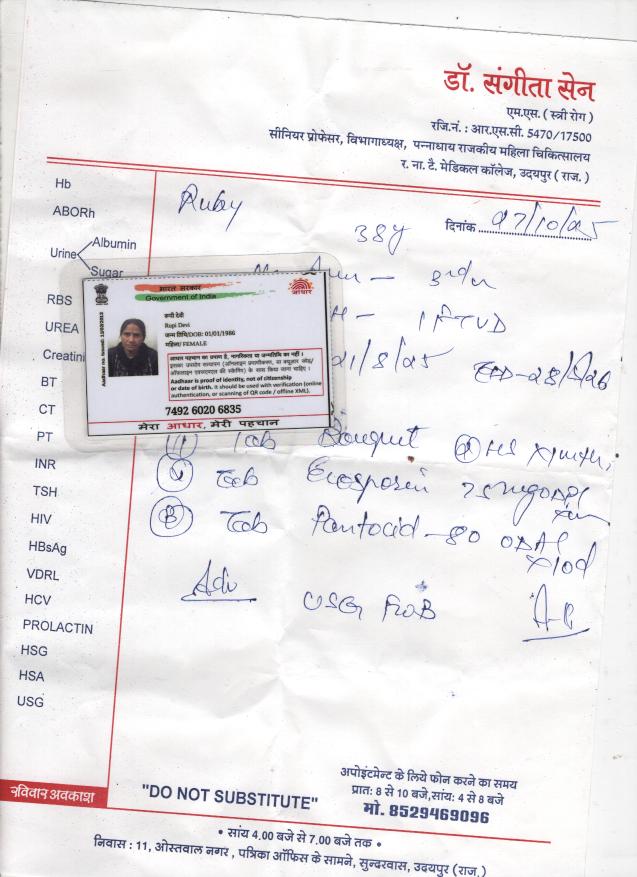 डॉ. संगीता सेन
एम.एस. ( स्त्री रोग )
रजि.नं. : आर.एस.सी. 5470/17500
सीनियर प्रोफेसर, विभागाध्यक्ष, पन्नाधाय राजकीय महिला चिकित्सालय
र. ना. टै. मेडिकल कॉलेज, उदयपुर ( राज. )
Hb
Ruby
ABORh
38y
दिनांक 27/10/25
Urine Albumin
Sugar
RBS
UREA
Creatini
BT
CT
PT
INR
TSH
HIV
HBsAg
VDRL
HCV
PROLACTIN
HSG
HSA
USG
भारत सरकार
Government of India
आधार
Aadhaar no. issued: 13/09/2012
रूपी देवी
Rupi Devi
जन्म तिथि/DOB: 01/01/1986
महिला/ FEMALE
आधार पहचान का प्रमाण है, नागरिकता या जन्मतिथि का नहीं ।
इसका उपयोग सत्यापन (ऑनलाइन प्रमाणीकरण, या क्यूआर कोड/
ऑफलाइन एक्सएमएल की स्कैनिंग) के साथ किया जाना चाहिए ।
Aadhaar is proof of identity, not of citizenship
or date of birth. It should be used with verification (online
authentication, or scanning of QR code / offline XML).
7492 6020 6835
मेरा आधार, मेरी पहचान
21/8/25
Tab
Tab Ecosporin 75mg
Tab Pantocid - 80
Adv USG
रविवार अवकाश
"DO NOT SUBSTITUTE"
अपोइंटमेन्ट के लिये फोन करने का समय
प्रात: 8 से 10 बजे, सांय: 4 से 8 बजे
मो. 8529469096
• सांय 4.00 बजे से 7.00 बजे तक •
निवास : 11, ओस्तवाल नगर , पत्रिका ऑफिस के सामने, सुन्दरवास, उदयपुर (राज.)